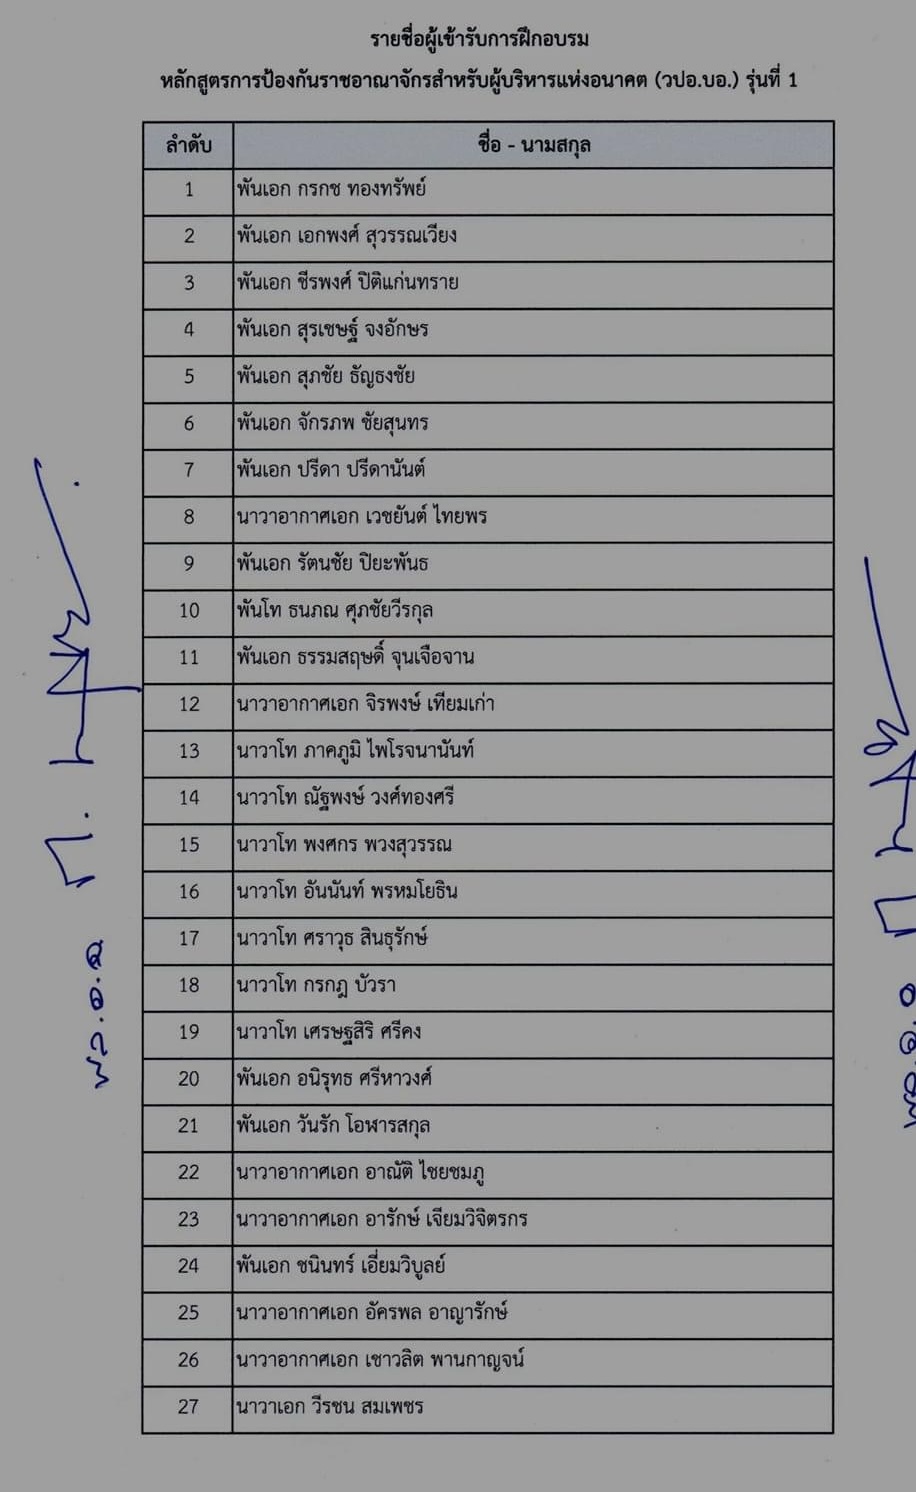 รายชื่อผู้เข้ารับการฝึกอบรม
หลักสูตรการป้องกันราชอาณาจักรสำหรับผู้บริหารแห่งอนาคต (วปอ.บอ.) รุ่นที่ 1
ลำดับ ชื่อ - นามสกุล
1 พันเอก กรกช ทองทรัพย์
2 พันเอก เอกพงศ์ สุวรรณเวียง
3 พันเอก ชีรพงศ์ ปิติแก่นทราย
4 พันเอก สุรเชษฐ์ จงอักษร
5 พันเอก สุภชัย ธัญธงชัย
6 พันเอก จักรภพ ชัยสุนทร
7 พันเอก ปรีดา ปรีดานันต์
8 นาวาอากาศเอก เวชยันต์ ไทยพร
9 พันเอก รัตนชัย ปิยะพันธ
10 พันโท ธนภณ ศุภชัยวีรกุล
11 พันเอก ธรรมสฤษดิ์ จุนเจือจาน
12 นาวาอากาศเอก จิรพงษ์ เทียมเก่า
13 นาวาโท ภาคภูมิ ไพโรจนานันท์
14 นาวาโท ณัฐพงษ์ วงศ์ทองศรี
15 นาวาโท พงศกร พวงสุวรรณ
16 นาวาโท อันนันท์ พรหมโยธิน
17 นาวาโท ศราวุธ สินธุรักษ์
18 นาวาโท กรกฎ บัวรา
19 นาวาโท เศรษฐสิริ ศรีคง
20 พันเอก อนิรุทธ ศรีหาวงศ์
21 พันเอก วันรัก โอฬารสกุล
22 นาวาอากาศเอก อาณัติ ไชยชมภู
23 นาวาอากาศเอก อารักษ์ เจียมวิจิตรกร
24 พันเอก ชนินทร์ เอี่ยมวิบูลย์
25 นาวาอากาศเอก อัครพล อาญารักษ์
26 นาวาอากาศเอก เชาวลิต พานกาญจน์
27 นาวาเอก วีรชน สมเพชร